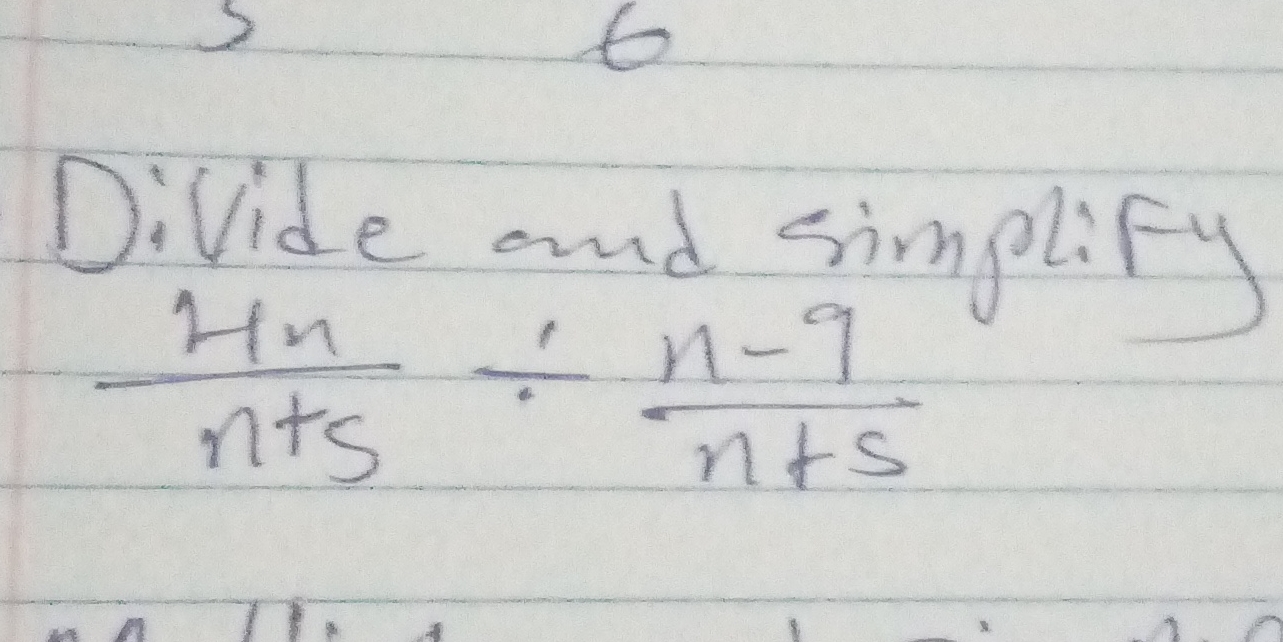 6
Divide and simplify
4n/n+5 ÷ n-9/n+5